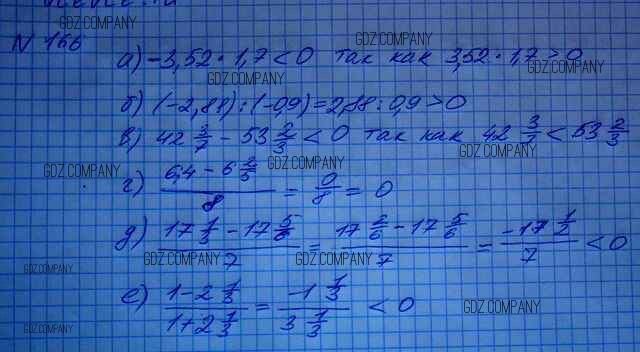 N 166
а) -3,52 · 1,7 < 0 так как 3,52 · 1,7 > 0
б) (-2,88) : (-0,9) = 2,88 : 0,9 > 0
в) 42 3/7 - 53 2/3 < 0 так как 42 3/7 < 53 2/3
г) (6,4 - 6 2/5)/8 = 0/8 = 0
д) (17 1/3 - 17 5/6)/7 = (17 2/6 - 17 5/6)/7 = (-17 1/2)/7 < 0
е) (1 - 2 1/3)/(1 + 2 1/3) = (-1 1/3)/(3 1/3) < 0
GDZ.COMPANY
GDZ.COMPANY
GDZ.COMPANY
GDZ.COMPANY
GDZ.COMPANY
GDZ.COMPANY
GDZ.COMPANY
GDZ.COMPANY
GDZ.COMPANY
GDZ.COMPANY
GDZ.COMPANY
GDZ.COMPANY
GDZ.COMPANY